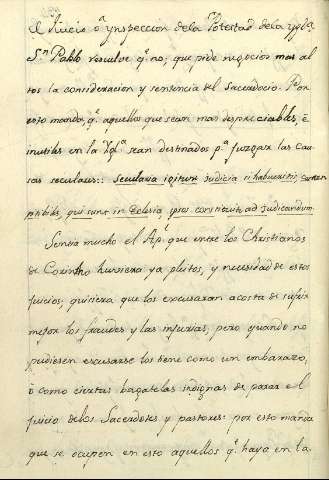 el Juicio o ynspeccion dela Potestad dela ygla.
Sn Pablo resuelve q.e no; que pide negocios mas al
tos la consideracion y sentencia del Sacerdocio. Por
esto manda, q.e aquellos que sean mas despreciables, é
inutiles en la Ygª sean destinados pª juzgar las Cau
sas seculares:: Secularia igitur judicia si habueritis, contem
ptibiles, qui sunt in Eclesia, ipsos constituite ad judicandum.
Sentia mucho el Ap.l que entre los Christianos
de Corintho huviera ya pleitos, y necesidad de estos
juicios, quisiera que los escusaran acosta de sufrir
mejor los fraudes y las injurias, pero quando no
pudiesen escusarse los tiene como un embarazo,
ò como ciertas bagatelas indignas de parar e el
juicio delos Sacerdotes y pastores: por esto manda
que se ocupen en esto aquellos q.e haya en la